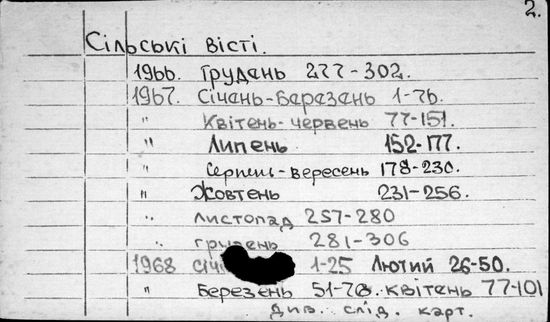 2.
Сільські вісті.
1966. Грудень 277-302.
1967. Січень-Березень 1-76.
" Квітень-червень 77-151.
" Липень 152-177.
" Серпень-вересень 178-230.
" Жовтень 231-256.
" листопад 257-280
" грудень 281-306
1968 1-25 Лютий 26-50.
" Березень 51-76. квітень 77-101
Див. слід. карт.